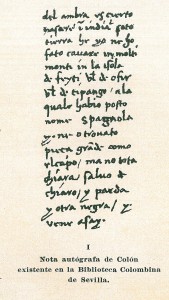 del ambra es cierto
nascere i india soto
tierra he yo ne ho
fato cavare in molti
monti in la isola
de feyti vel de ofir
vel de cipango, a la
quale habio posto
nome spagnola
y ne o trovato
pieça grãde como
el capo, ma no tota
chiara salvo de
chiaro y parda
y otra negra y
vene asay.
I
Nota autógrafa de Colón
existente en la Biblioteca Colombina
de Sevilla.